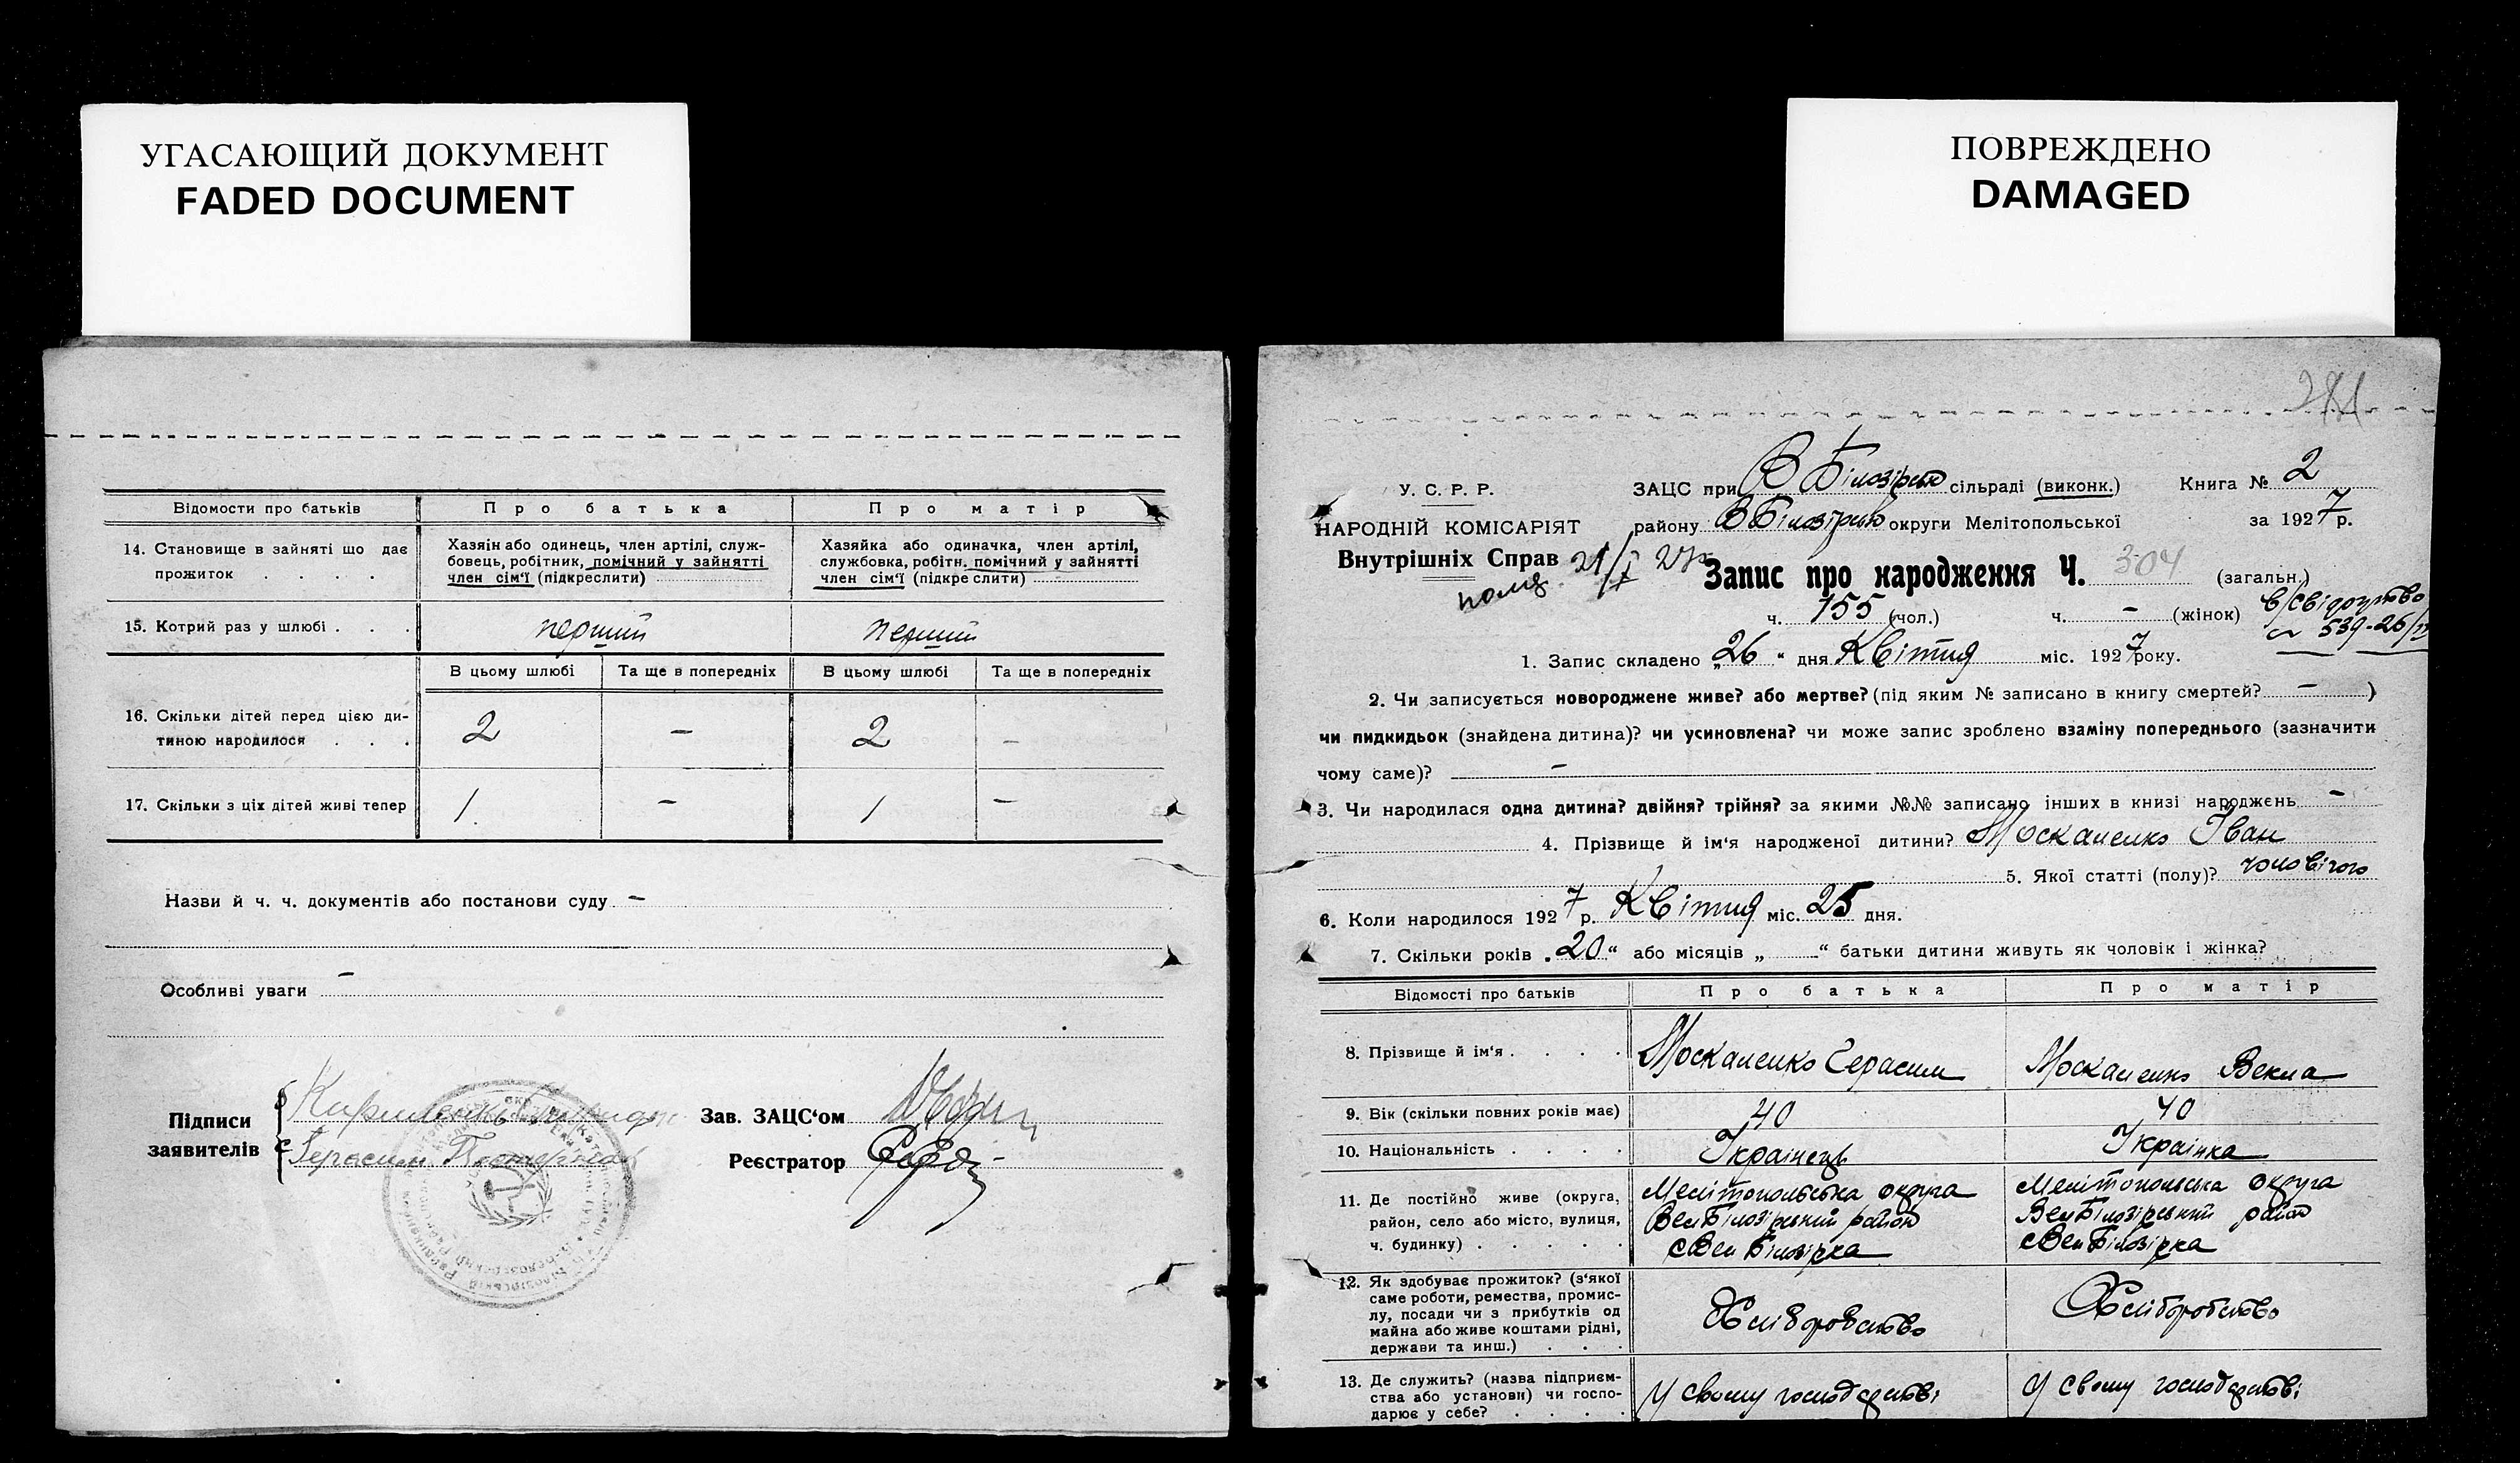 УГАСАЮЩИЙ ДОКУМЕНТ
FADED DOCUMENT
ПОВРЕЖДЕНО
DAMAGED
Відомости про батьків Про батька Про матір
14. Становище в зайняті що дає прожиток . . . .
Хазяін або одинець, член артілі, служ-
бовець, робітник, помічний у зайнятті
член сім'ї (підкреслити)
Хазяйка або одиначка, член артілі,
службовка, робітн. помічний у зайнятті
член сім'ї (підкреслити)
15. Котрий раз у шлюбі . . . перший перший
В цьому шлюбі Та ще в попередніх В цьому шлюбі Та ще в попередніх
16. Скільки дітей перед цією ди-
тиною народилося . . . 2 – 2 –
17. Скільки з ціх дітей живі тепер 1. – 1 –
Назви й ч. ч. документів або постанови суду –
Особливі уваги –
Підписи
заявителів
Герасим
Зав. ЗАЦС'ом
Реєстратор
281
У. С. Р. Р.
НАРОДНІЙ КОМІСАРІЯТ
Внутрішніх Справ
ЗАЦС при В Білозірськ сільраді (виконк.) Книга № 2
району В Білозірськ округи Мелітопольської за 1927 р.
Запис про народження Ч. 304 (загальн.)
ч. 155 (чол.) ч. – (жінок)
в/свідоцтво
539-26/
1. Запис складено „26“ дня Квітня міс. 1927 року.
2. Чи записується новороджене живе? або мертве? (під яким № записано в книгу смертей? – )
чи пидкидьок (знайдена дитина)? чи усиновлена? чи може запис зроблено взаміну попереднього (зазначити
чому саме)? –
3. Чи народилася одна дитина? двійня? трійня? за якими №№ записано інших в книзі народжень –
4. Прізвище й ім'я народженої дитини? Москаленко Іван
5. Якої статті (полу)? чоловічого
6. Коли народилося 1927 р. Квітня міс. 25 дня.
7. Скільки років „20“ або місяців „ “ батьки дитини живуть як чоловік і жінка?
Відомості про батьків Про батька Про матір
8. Прізвище й ім'я . . . . Москаленко Герасим Москаленко Векла
9. Вік (скільки повних років має) 40 40
10. Національність . . . . Українець Українка
11. Де постійно живе (округа,
район, село або місто, вулиця,
ч. будинку) . . . . .
Мелітопольська округа
Вел Білозірський район
с Вел Білозірка
Мелітопольська округа
Вел Білозірський район
с Вел Білозірка
12. Як здобуває прожиток? (з'якої
саме роботи, ремества, промис-
лу, посади чи з прибутків од
майна або живе коштами рідні,
держави та инш.) . . .
Хліборобство
Хліборобство
13. Де служить? (назва підприєм-
ства або установи) чи госпо-
дарює у себе? . . . .
У своему господарстві
У своему господарстві